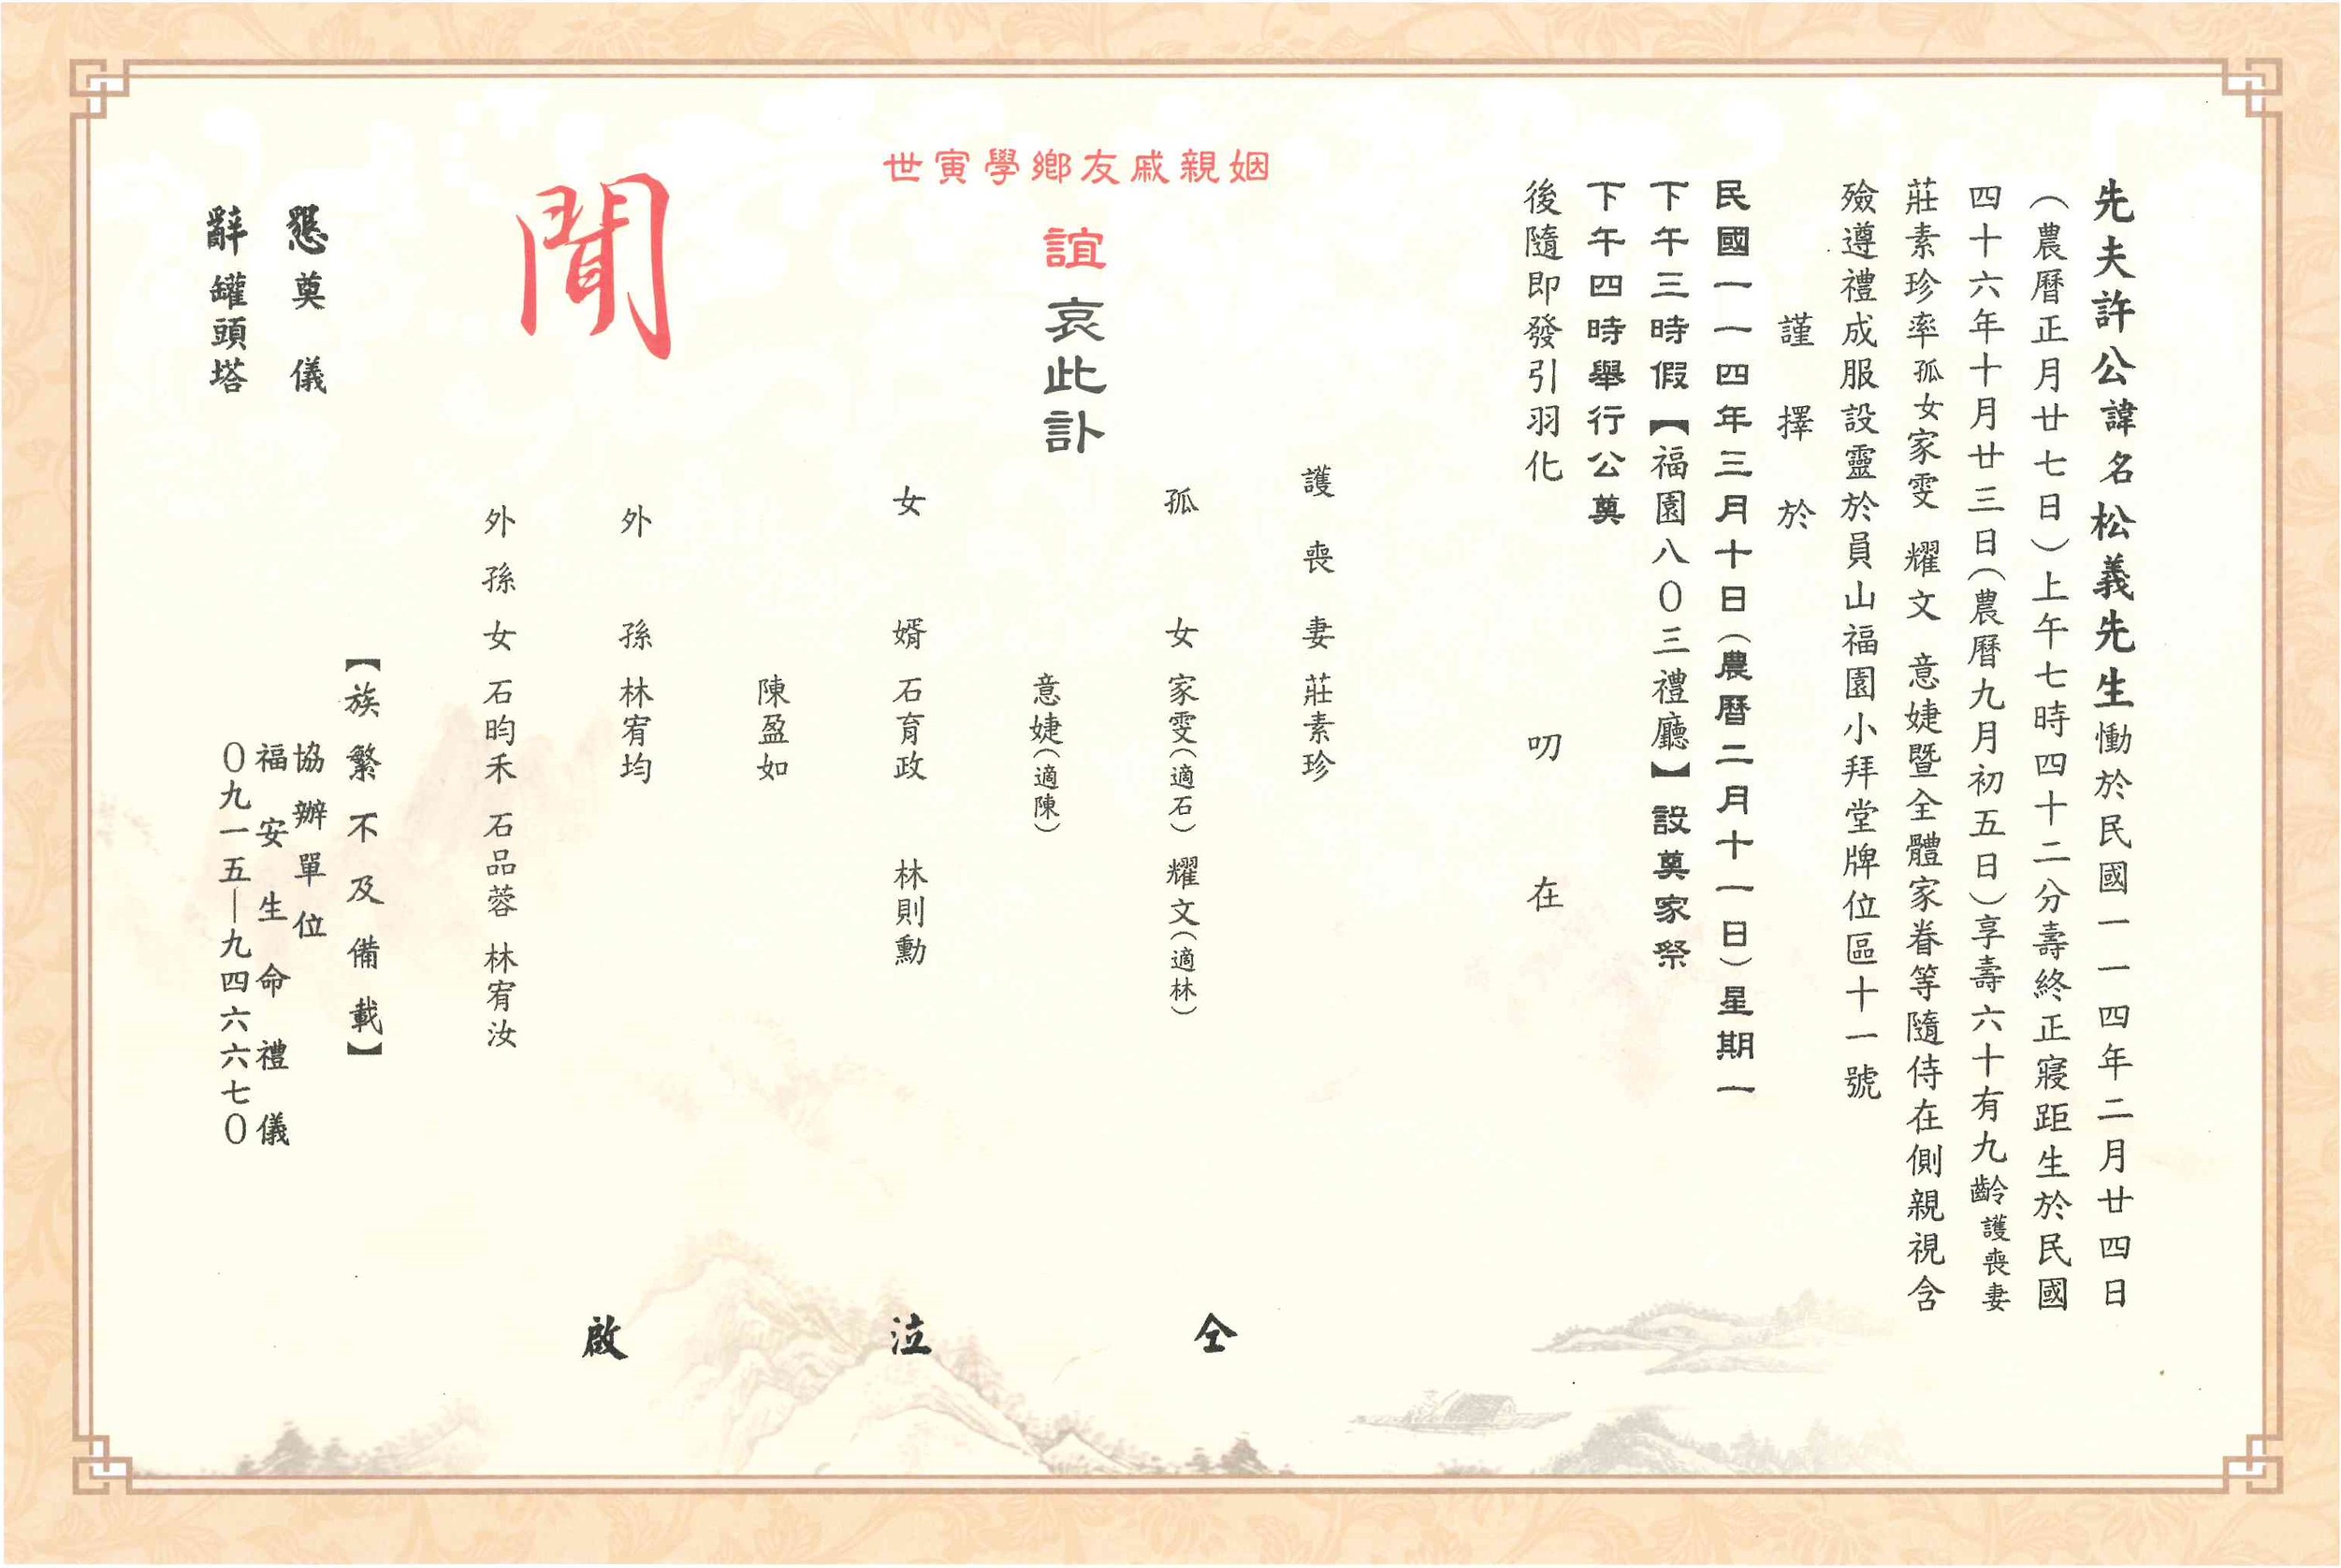 先夫許公諱名松義先生慟於民國一一四年二月廿四日
(農曆正月廿七日)上午七時四十二分壽終正寢距生於民國
四十六年十月廿三日(農曆九月初五日)享壽六十有九齡護喪妻
莊素珍率孤女家雯 耀文 意婕暨全體家眷等隨侍在側親視含
殮遵禮成服設靈於員山福園小拜堂牌位區十一號
謹擇於
民國一一四年三月十日(農曆二月十一日)星期一
下午三時假【福園八0三禮廳】設奠家祭
下午四時舉行公奠
後隨即發引羽化 叨在
姻親戚友鄉學寅世
誼哀此訃
聞
護喪妻 莊素珍
孤女 家雯(適石) 耀文(適林)
意婕(適陳)
女婿 石育政 林則勳
陳盈如
外孫 林宥均
外孫女 石昀禾 石品蓉 林宥汝
仝泣啟
【族繁不及備載】
懇奠儀
辭罐頭塔
協辦單位
福安生命禮儀
0九一五—九四六六七0